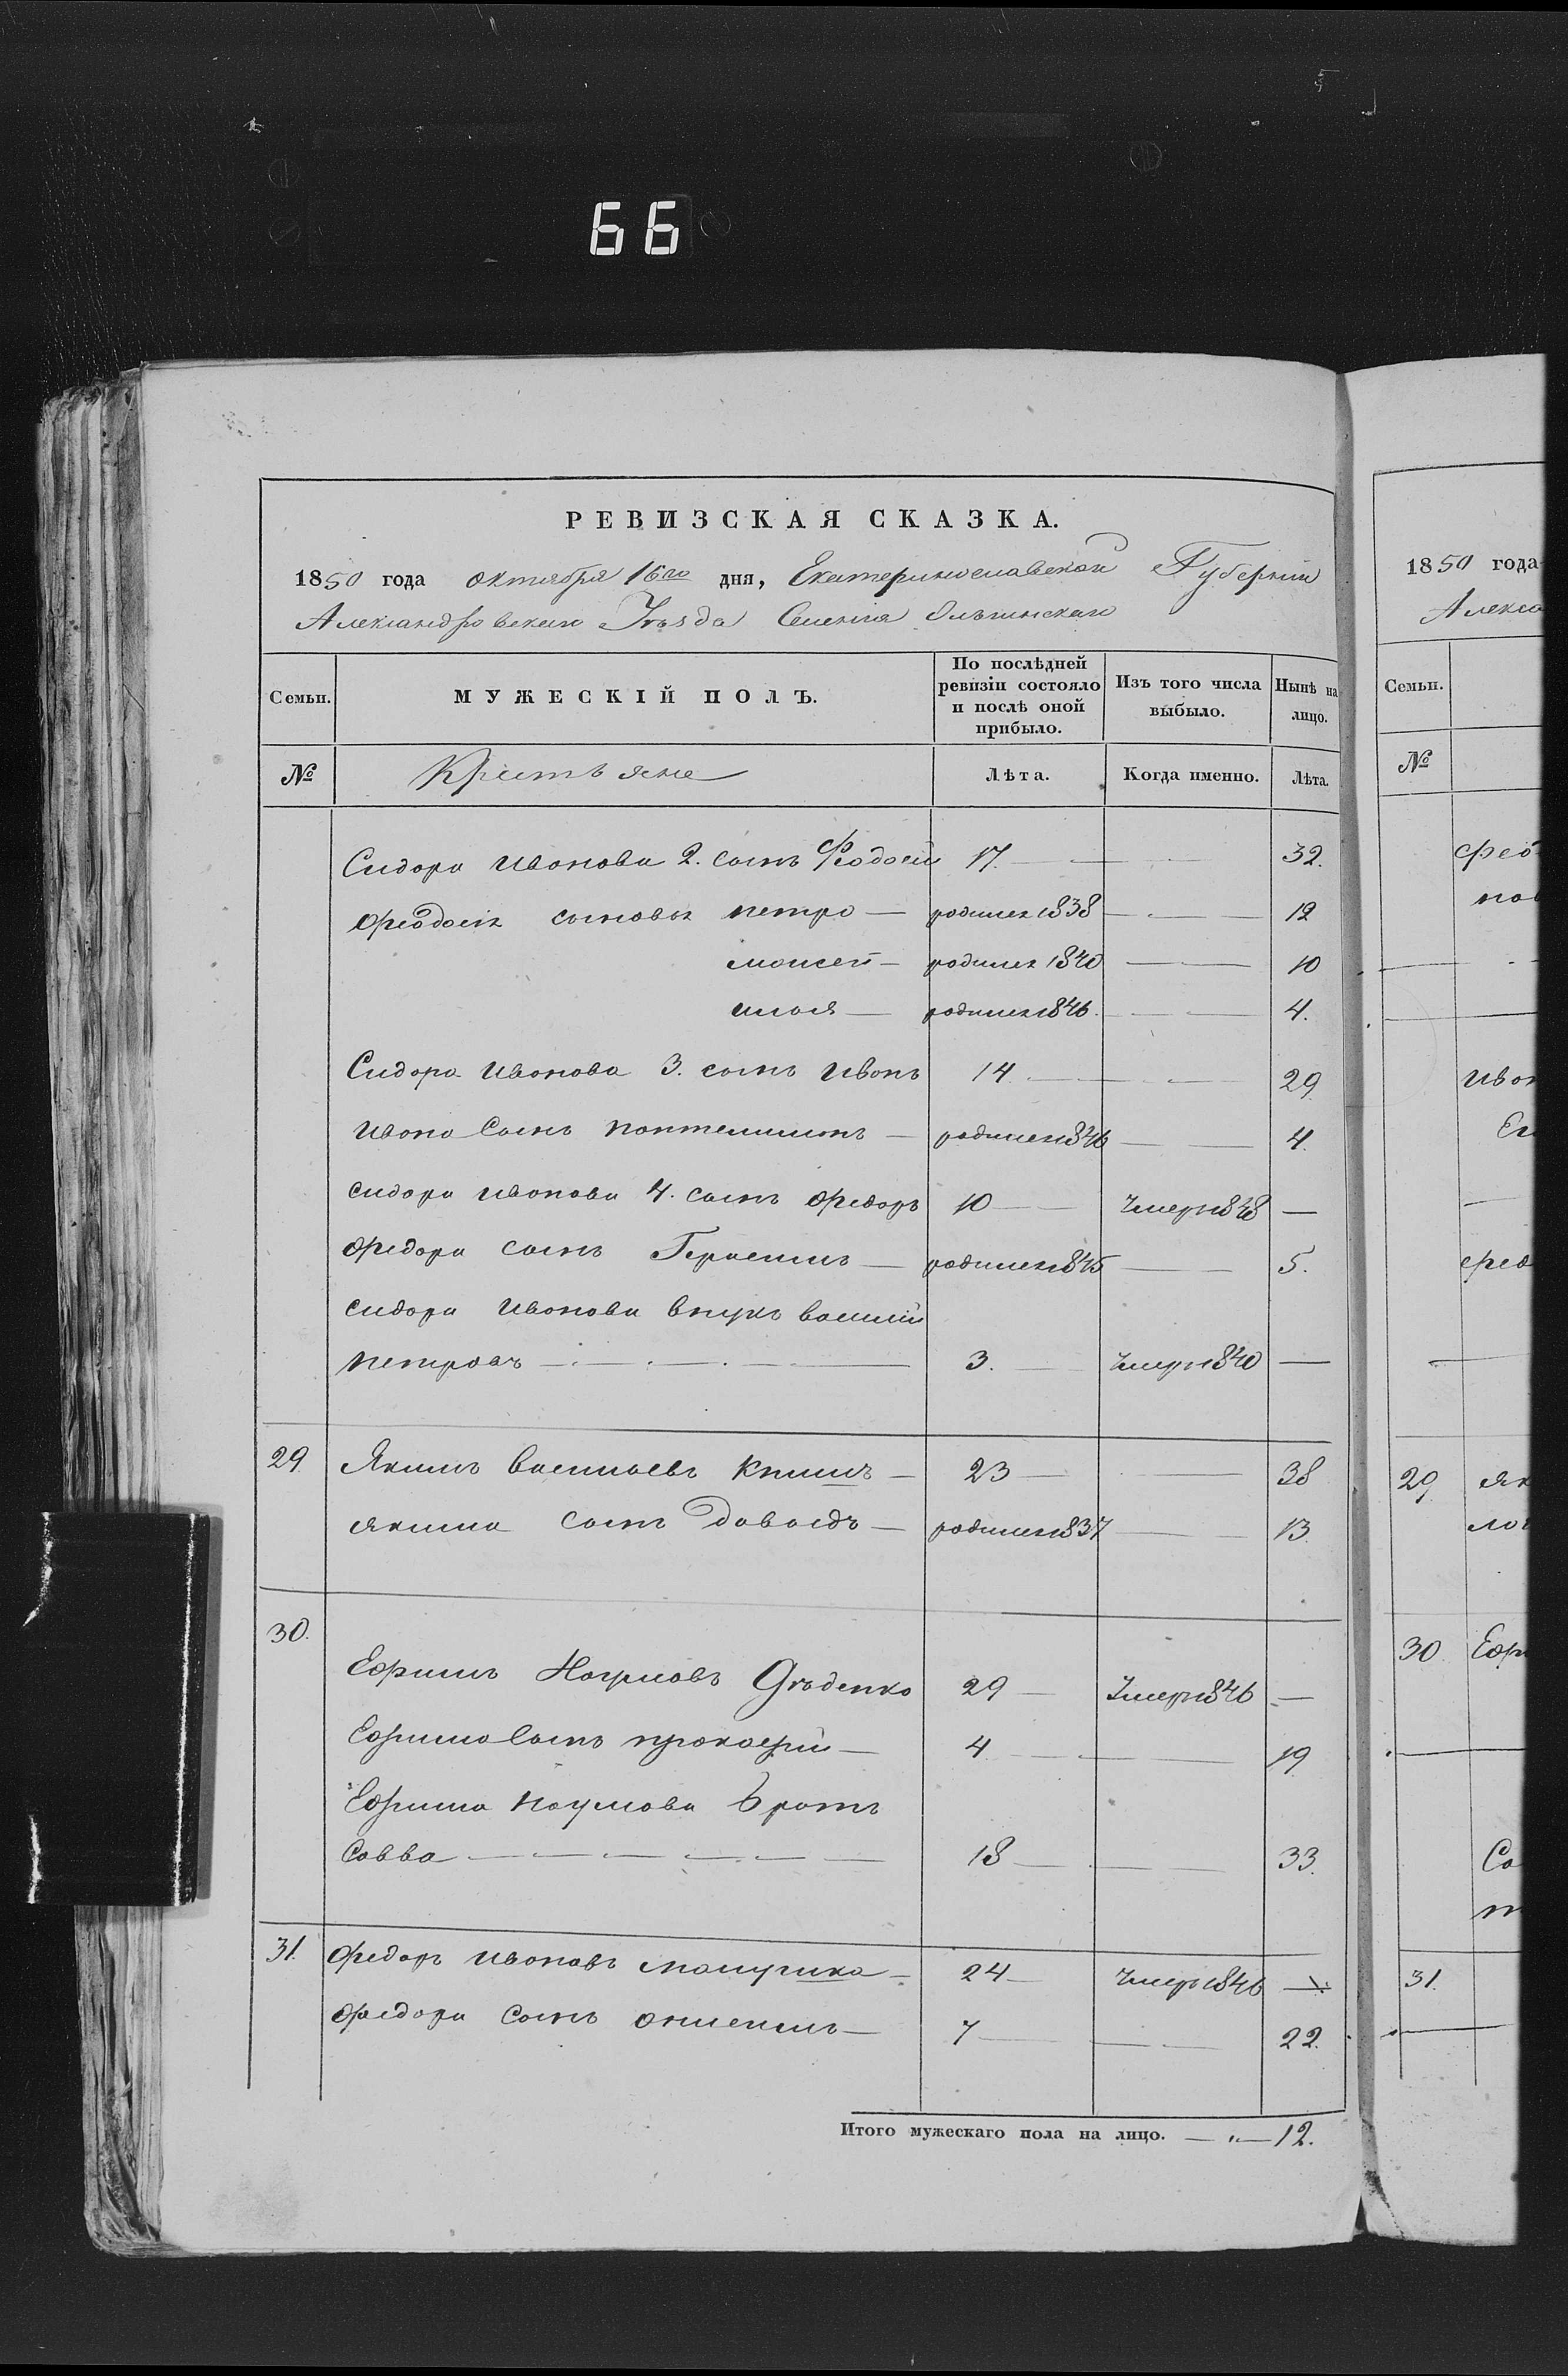 66
РЕВИЗСКАЯ СКАЗКА.
1850 года октября 16го дня, Екатеринославской Губерніи
Александровскаго Уѣзда Селенія Ольгинскаго
Семьи. МУЖЕСКІЙ ПОЛЪ. По послѣдней ревизіи состояло и послѣ оной прибыло. Изъ того числа выбыло. Нынѣ на лицо.
№ Крестьяне Лѣта. Когда именно. Лѣта.
Сидора Иванова 2. сынъ Феодосій 17. 32.
Феодосія сыновья петро — родился 1838 12
моисей — родился 1840 10
илья — родился 1846. 4.
Сидора Иванова 3. сынъ Иванъ 14 29
Ивана Сынъ пантелимонъ — родился 1846 4.
Сидора Иванова 4. сынъ Федоръ 10 Умеръ 1848 —
Федора сынъ Герасимъ — родился 1845 5.
Сидора Иванова внукъ василій
петровъ 3. Умеръ 1840 —
29 Якимъ васильевъ Книшъ — 23 38
Якима сынъ давыдъ — родился 1837 13.
30. Ефимъ Наумовъ Дѣденко 29 Умеръ 1846 —
Ефима Сынъ прокофій — 4 19
Ефима Наумова братъ
Савва 18 33.
31. Федоръ Ивановъ — 24 Умеръ 1846 —
Федора Сынъ — 7 22.
Итого мужескаго пола на лицо. — 12.
1850 года
Алекса
Семьи.
№
29
30. Ефи
31.